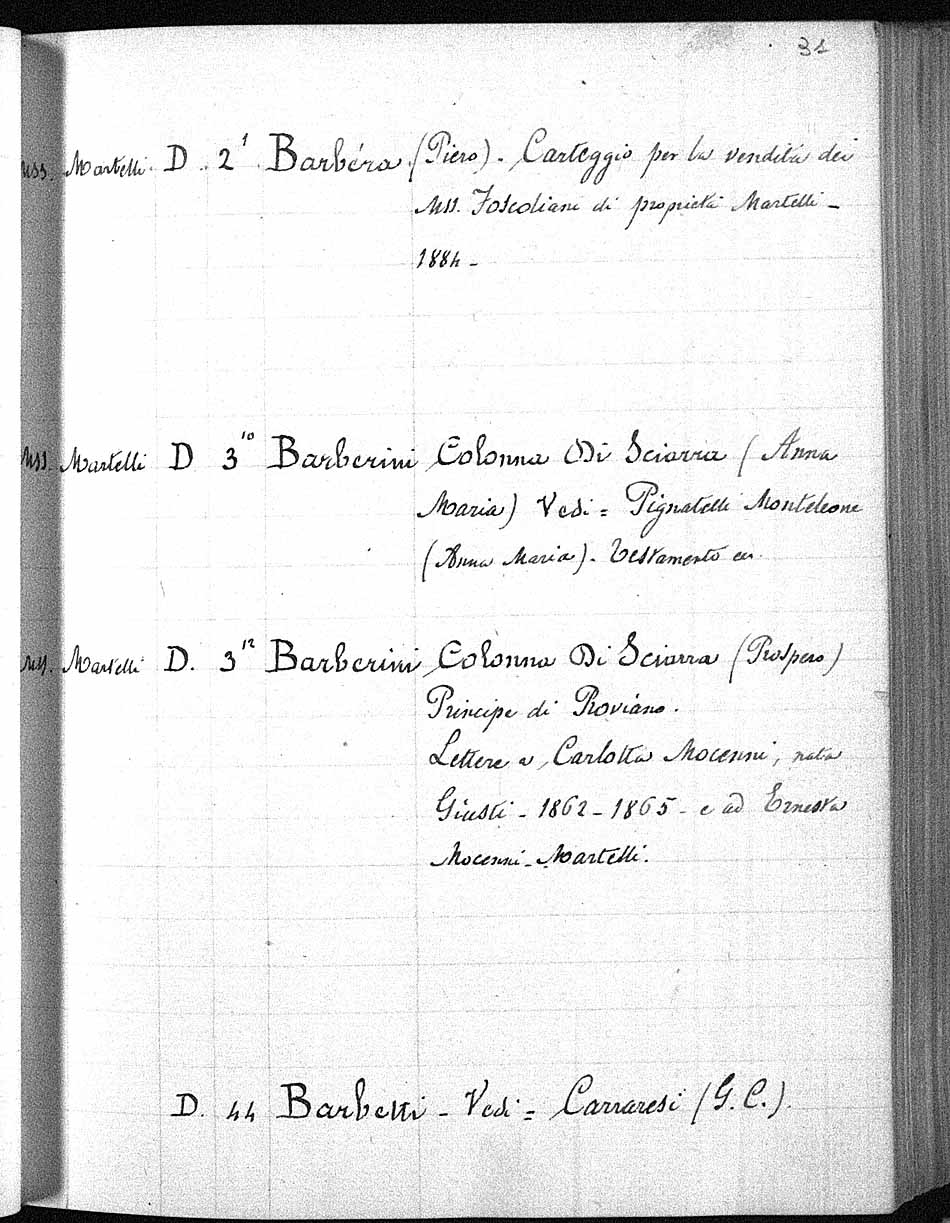 31
Mss. Martelli. D. 2¹. Barbèra (Piero). Carteggio per la vendita dei
Mss. Foscoliani di proprietà Martelli –
1884 –
Mss. Martelli D 3¹⁰ Barberini Colonna Di Sciarra (Anna
Maria) Vedi = Pignatelli Monteleone
(Anna Maria). Testamento
Mss. Martelli D. 3¹² Barberini Colonna Di Sciarra (Prospero)
Principe di Roviano.
Lettere a Carlotta Mocenni, nata
Giusti – 1862 – 1865 – e ad Ernesta
Mocenni – Martelli.
D. 44 Barbetti – Vedi = Carraresi (G. C.).